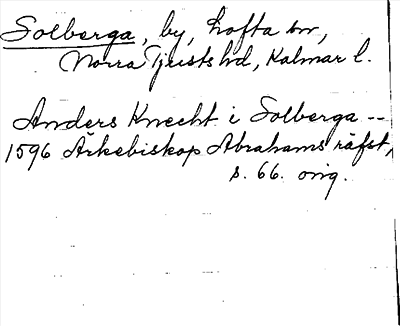 Solberga, by, Lofta sn,
Norra Tjusts hd, Kalmar l.
Anders Knecht i Solberga --
1596 Ärkebiskop Abrahams räfst,
s. 66. orig.